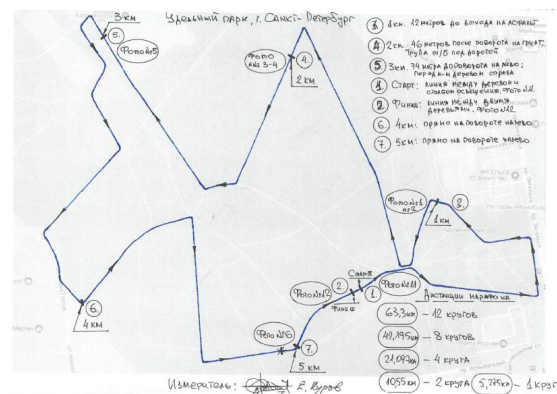 Удельный парк, г. Санкт-Петербург
3 км
5.
Фото №5
Фото №№ 3-4
4.
2 км
3. 1км. 12 метров до выхода на асфальт
4 2км. 46 метров после поворота на грунт.
Труба м/б под дорогой
5 3км. 74 метра до поворота на лево;
перед 1-м деревом справа
1 Старт: линия между деревом и
столбом освещения. Фото №11
2 Финиш: линия между двумя
деревьями. Фото №12
6. 4км: прямо на повороте налево
7. 5км: прямо на повороте налево
Фото №1
№2
3.
1 км
6.
4 км
Фото №12
2
Старт
1.
Финиш
Фото №11
Фото №6
7.
5 км
Дистанции марафона
63,3км – 12 кругов
42,195км – 8 кругов
21,097км – 4 круга
10,55км – 2 круга 5,275км – 1 круг
Измеритель: Е. Куров